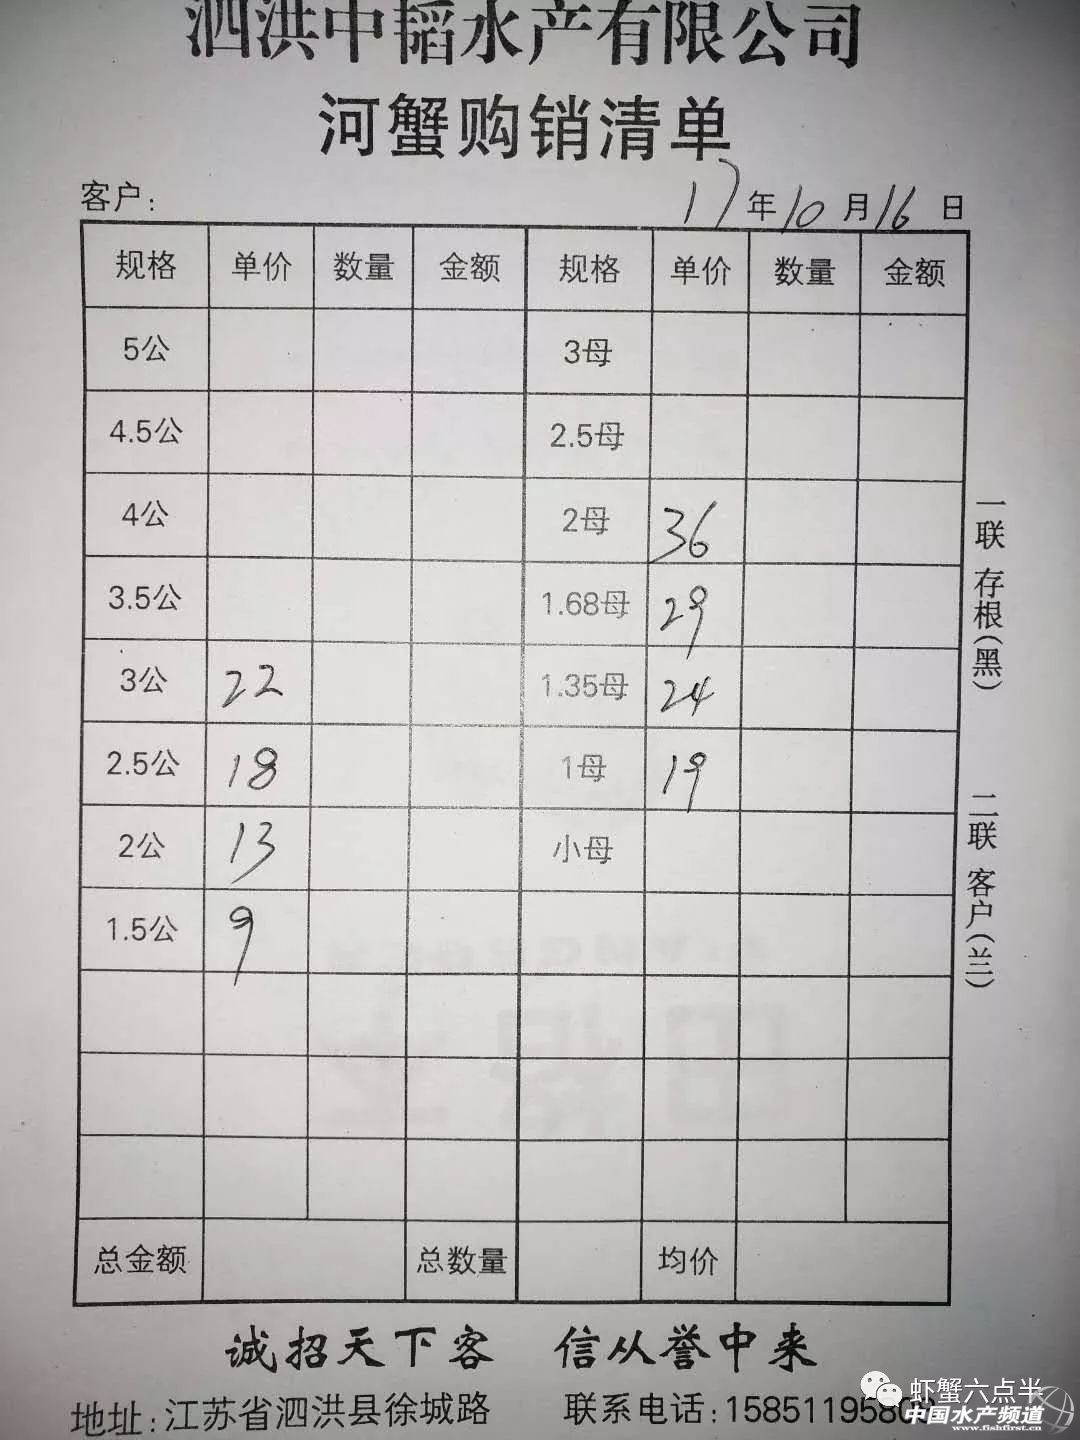 泗洪中韬水产有限公司
河蟹购销清单
客户: 17年10月16日
规格 单价 数量 金额 规格 单价 数量 金额
5公 3母
4.5公 2.5母
4公 2母 36
3.5公 1.68母 29
3公 22 1.35母 24
2.5公 18 1母 19
2公 13 小母
1.5公 9
总金额 总数量 均价
一联 存根(黑) 二联 客户(兰)
诚招天下客 信从誉中来
地址:江苏省泗洪县徐城路 联系电话:1585119580
虾蟹六点半
中国水产频道
www.fishfirst.cn